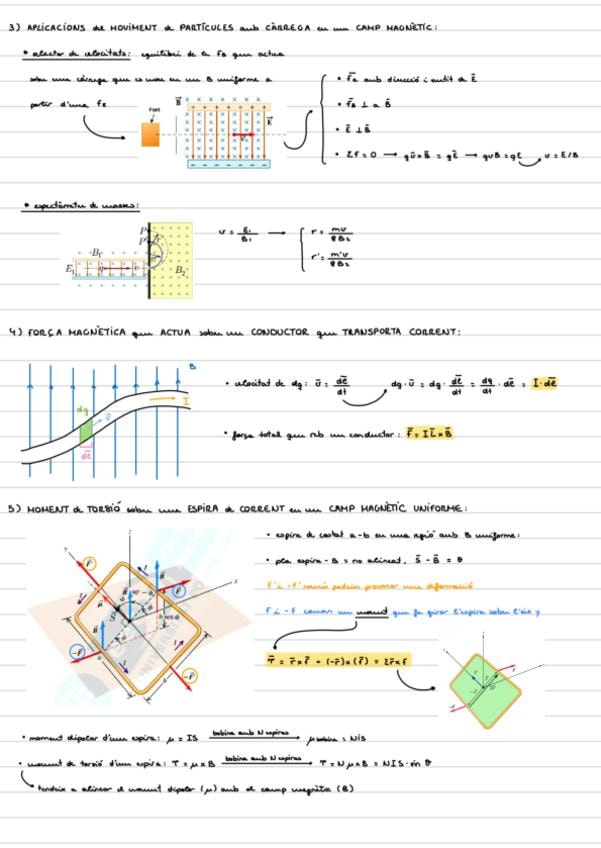 3) APLICACIONS del MOVIMENT de PARTÍCULES amb CÀRREGA en un CAMP MAGNÈTIC:
• selector de velocitats: equilibri de la Fa que actua
sobre una càrrega que es mou en un B uniforme a
partir d'una Fe
Font
B
E
• Fe amb direcció i sentit de E
• FB ⊥ a B
• E ⊥ B
• ΣF = 0 → qv×B = qE → qvB = qE → v = E/B
• espectròmetre de masses:
P
P'
r
B₁
E₁
q
v
B₂
v = E₁/B₁ → r = mv/qB₂
r' = m'v/qB₂
4) FORÇA MAGNÈTICA que ACTUA sobre un CONDUCTOR que TRANSPORTA CORRENT:
B
I
dq
v
dl
• velocitat de dq: v = dl/dt → dq·v = dq·dl/dt = dq/dt·dl = I·dl
• força total que rep un conductor: F = I L×B
5) MOMENT de TORSIÓ sobre una ESPIRA de CORRENT en un CAMP MAGNÈTIC UNIFORME:
• espira de costat a-b en una regió amb B uniforme:
• pla espira - B = no alineat, S - B = θ
F' i -F' només poden provocar una deformació
F i -F causen un moment que fa girar l'espira sobre l'eix y
τ = r×F + (-r)×(F) = 2r×F
• moment dipolar d'una espira: μ = IS → bobina amb N espires → μ bobina = NIS
• moment de torsió d'una espira: τ = μ×B → bobina amb N espires → τ = Nμ×B = NIS·sin θ
tendeix a alinear el moment dipolar (μ) amb el camp magnètic (B)